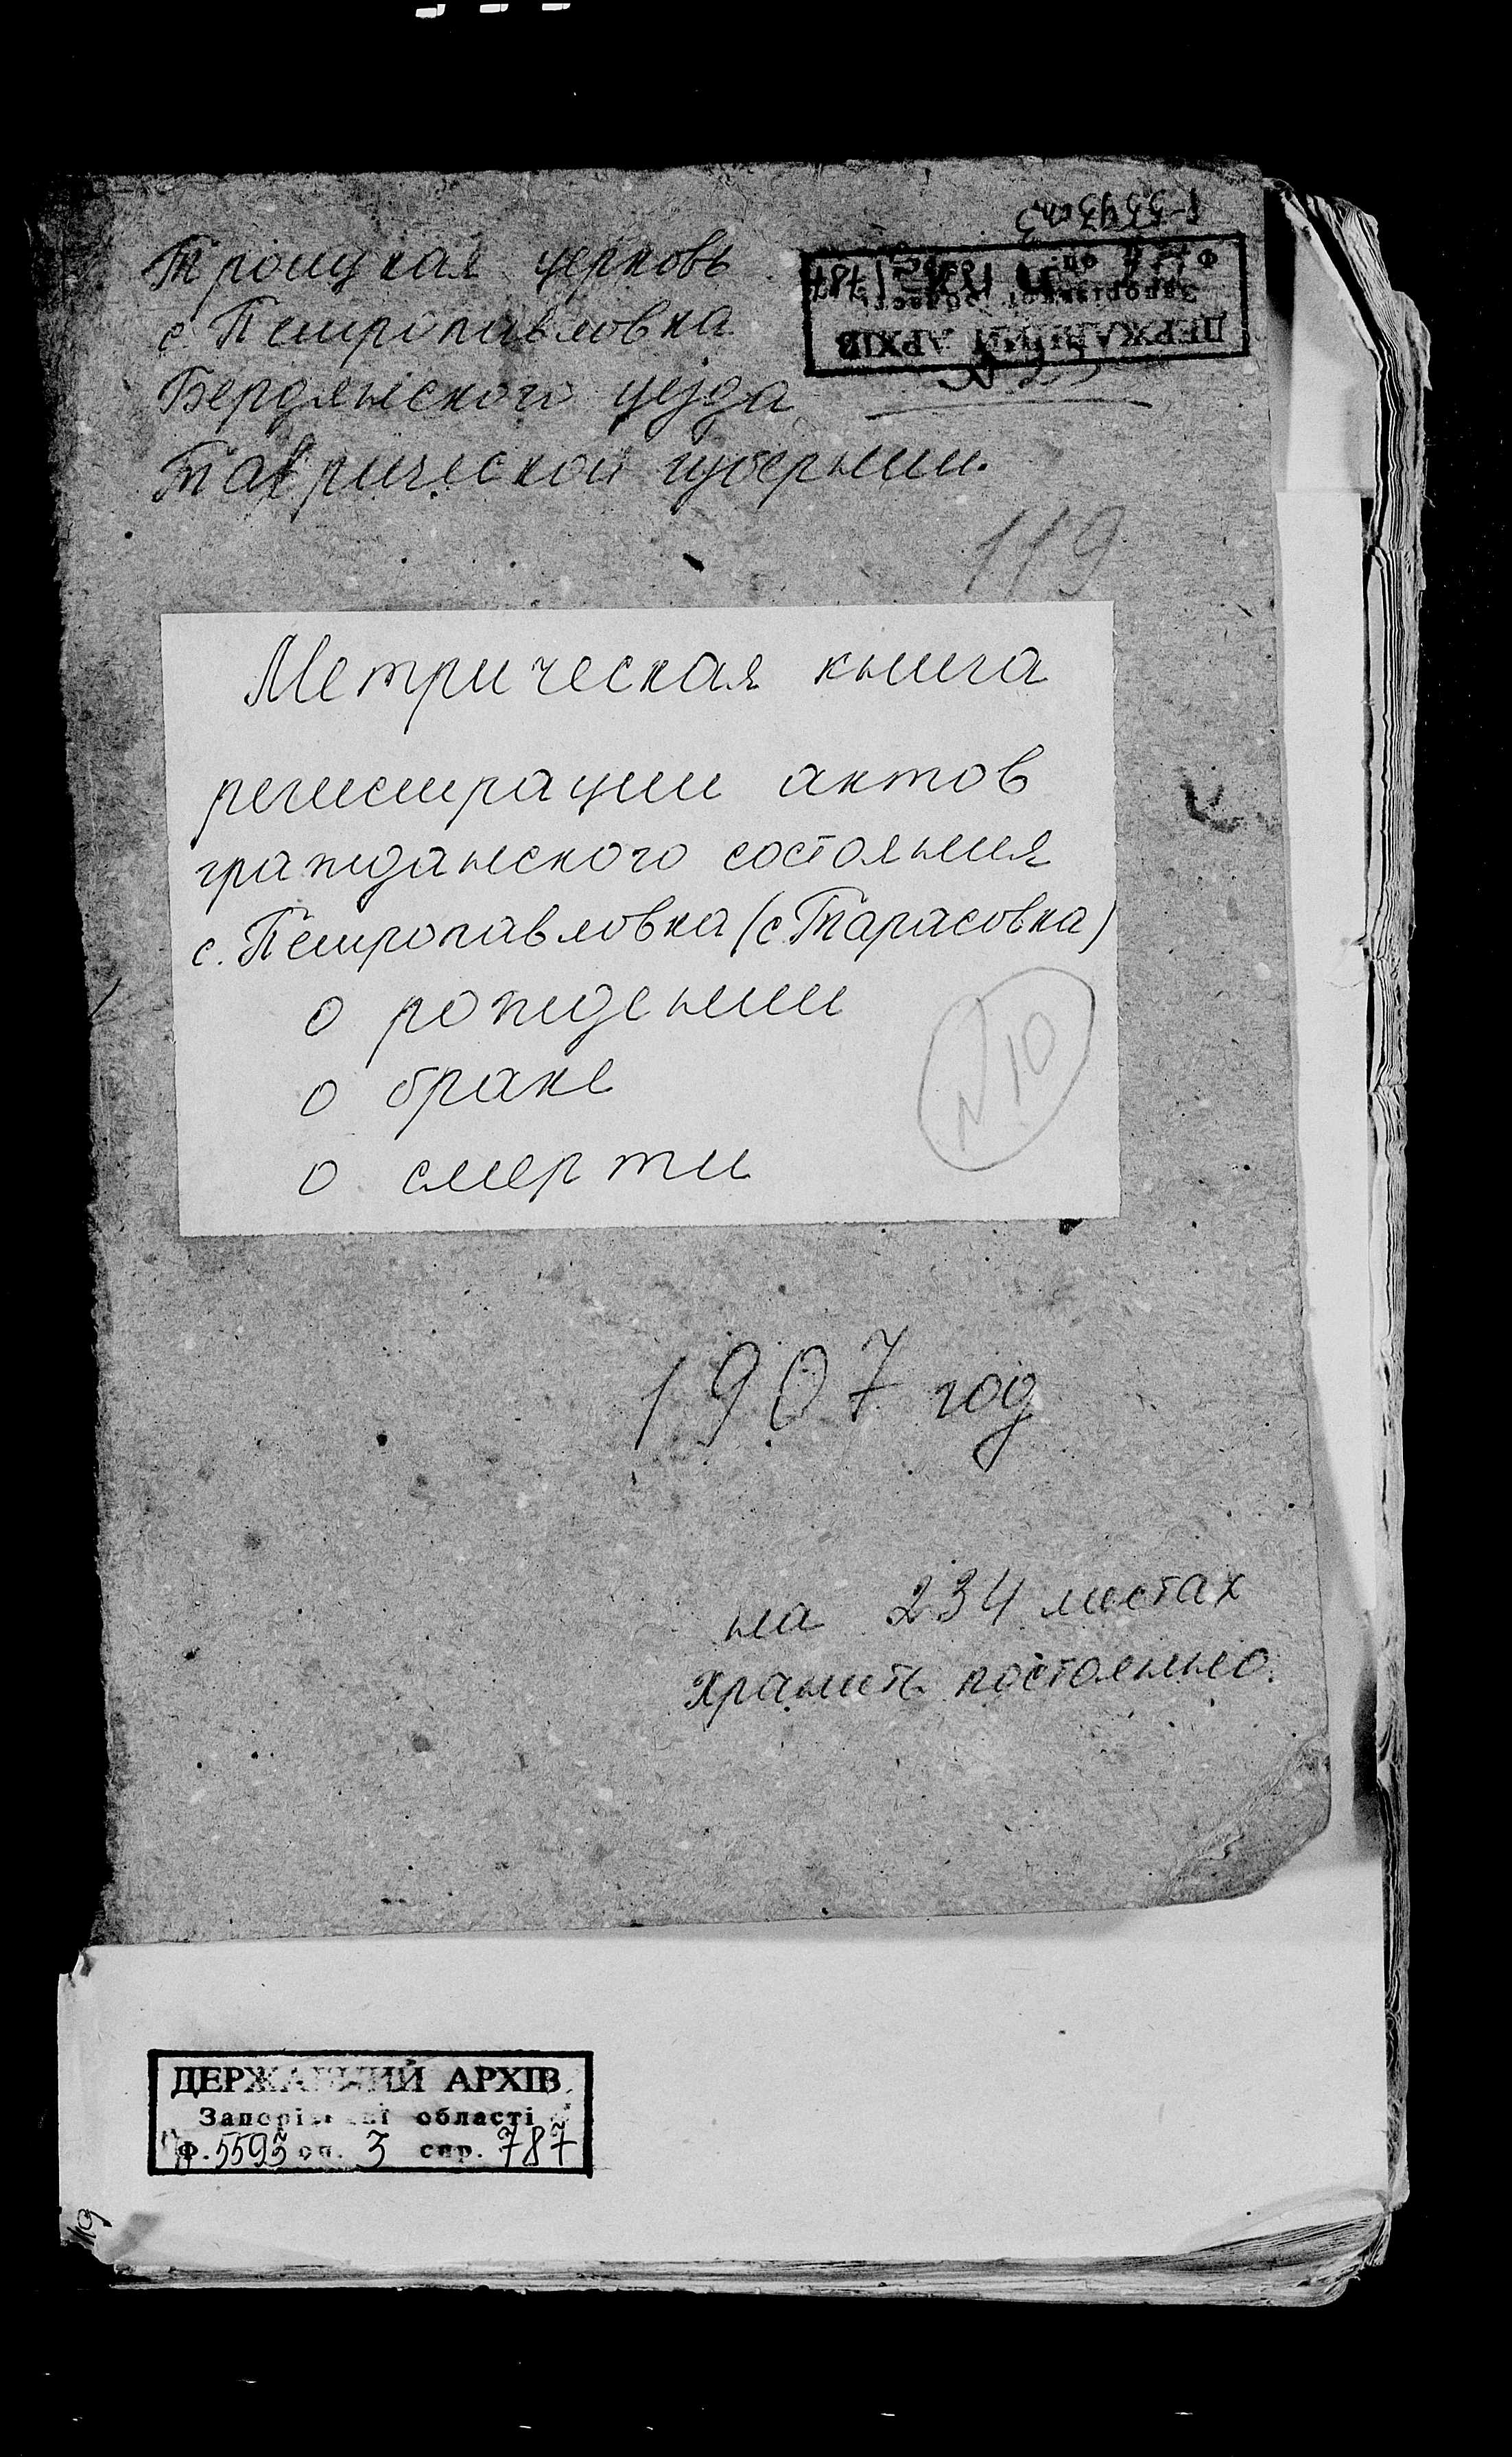 Троицкая церковь
с. Петропавловка
Бердянского уезда
Таврической губернии.
ДЕРЖАВНИЙ АРХІВ
Запорізької області
119
Метрическая книга
регистрации актов
гражданского состояния
с. Петропавловка (с. Тарасовка)
о рождении
о браке
о смерти
N 10
1907 год
на 234 листах
Хранить постоянно.
ДЕРЖАВНИЙ АРХІВ
Запорізької області
Ф. 5593 оп. 3 спр. 787
119